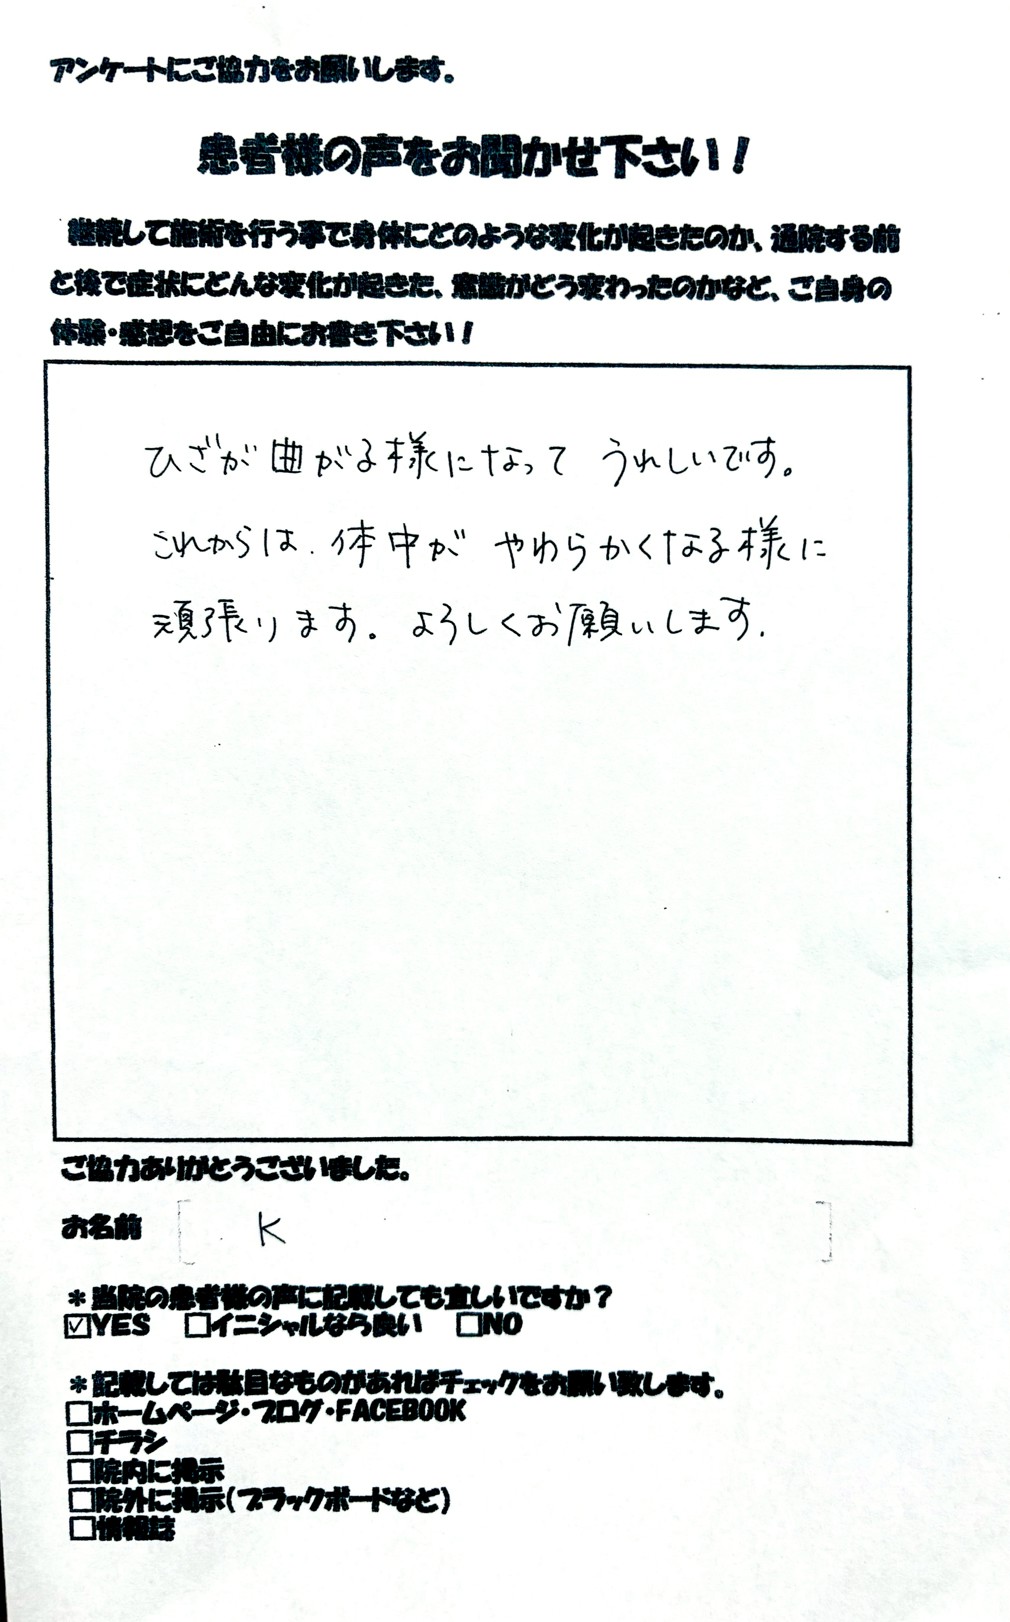 アンケートにご協力をお願いします。
患者様の声をお聞かせ下さい！
継続して施術を行う事で身体にどのような変化が起きたのか、通院する前
と後で症状にどんな変化が起きた、意識がどう変わったのかなど、ご自身の
体験・感想をご自由にお書き下さい！
ひざが曲がる様になって うれしいです。
これからは、体中が やわらかくなる様に
頑張ります。よろしくお願いします。
ご協力ありがとうございました。
お名前 [ K ]
＊当院の患者様の声に記載しても宜しいですか？
☑YES □イニシャルなら良い □NO
＊記載しては駄目なものがあればチェックをお願い致します。
□ホームページ・ブログ・FACEBOOK
□チラシ
□院内に掲示
□院外に掲示(ブラックボードなど)
□情報誌